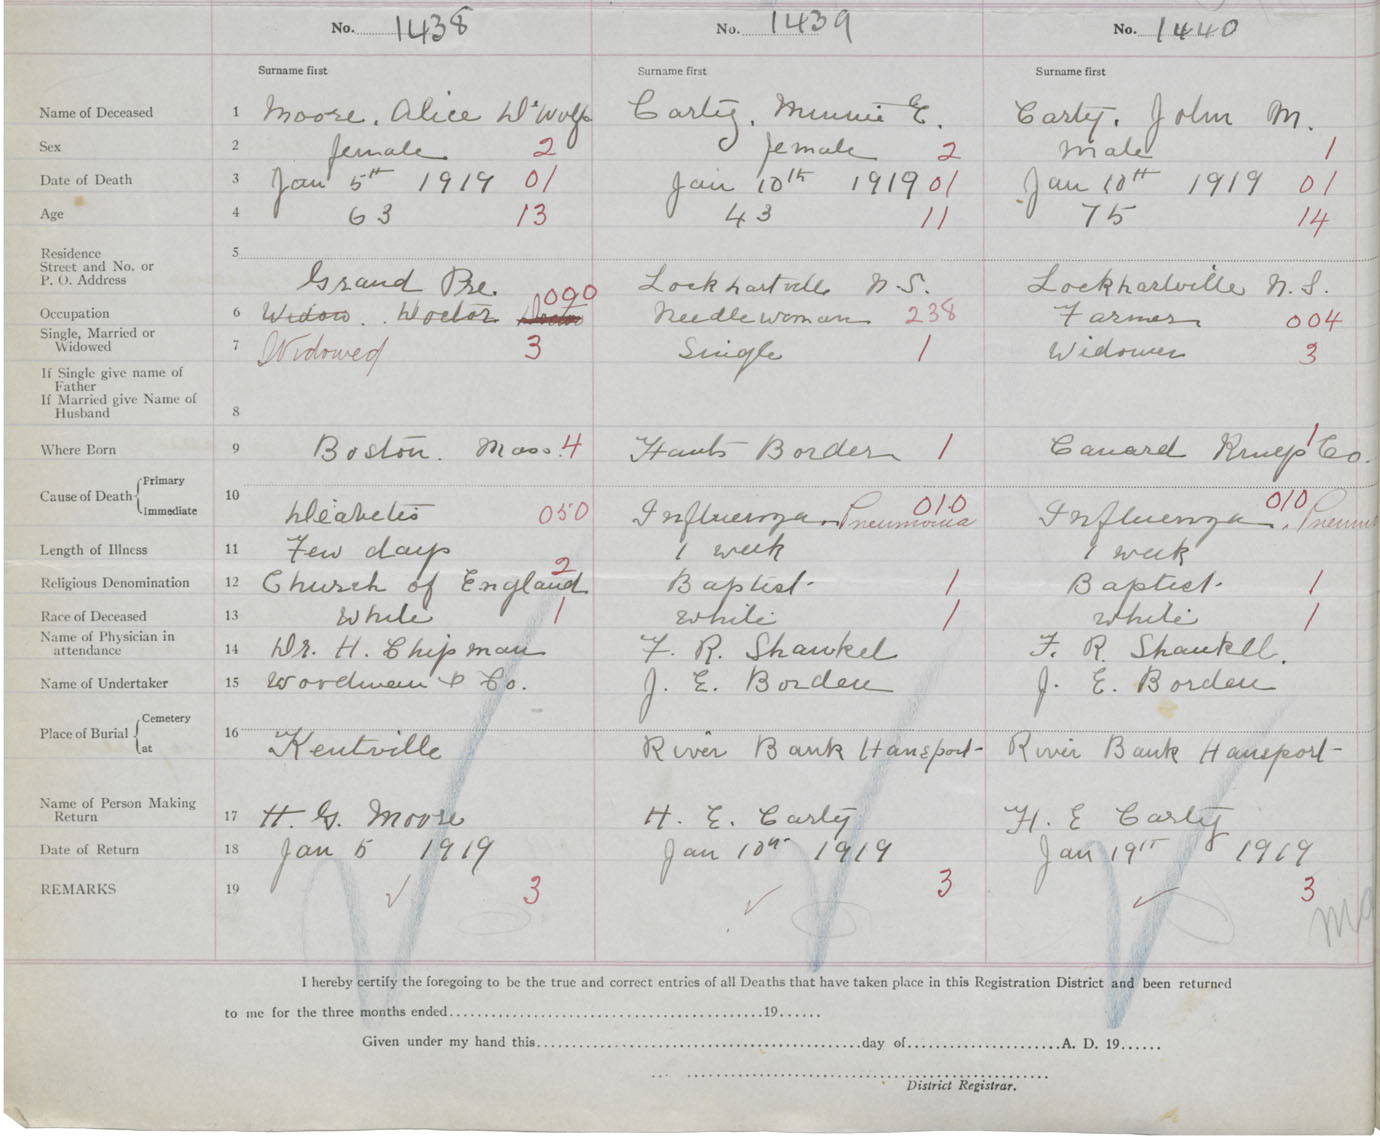 No. 1438 No. 1439 No. 1440
Surname first Surname first Surname first
Name of Deceased 1 Moore, Alice DeWolfe Carty, Minnie E. Carty, John M.
Sex 2 female 2 female 2 male 1
Date of Death 3 Jan 5th 1919 01 Jan 10th 1919 01 Jan 10th 1919 01
Age 4 63 13 43 11 75 14
Residence 5
Street and No. or
P. O. Address Grand Pre. Lockhartville N.S. Lockhartville N.S.
000
Occupation 6 Widow. Doctor Doctor Needlewoman 238 Farmer 004
Single, Married or
Widowed 7 Widowed 3 Single 1 Widower 3
If Single give name of
Father
If Married give Name of
Husband 8
Where Born 9 Boston. Mass. 4 Hants Border 1 Canard Kings Co. 1
Cause of Death { Primary
Immediate 10 Diabetis 050 Influenza. Pneumonia 010 Influenza. 010
Length of Illness 11 Few days 1 week 1 week
Religious Denomination 12 Church of England 2 Baptist 1 Baptist. 1
Race of Deceased 13 White 1 White 1 White 1
Name of Physician in
attendance 14 Dr. H. Chipman F. R. Shankel F. R. Shankell.
Name of Undertaker 15 Woodman & Co. J. E. Borden J. E. Borden
Place of Burial { Cemetery
at 16 Kentville River Bank Hansport River Bank Hansport
Name of Person Making
Return 17 H. G. Moore H. E. Carty H. E Carty
Date of Return 18 Jan 5 1919 Jan 10th 1919 Jan 19th 1919
REMARKS 19 3 3 3
I hereby certify the foregoing to be the true and correct entries of all Deaths that have taken place in this Registration District and been returned
to me for the three months ended..........19......
Given under my hand this..........day of..........A. D. 19......
District Registrar.